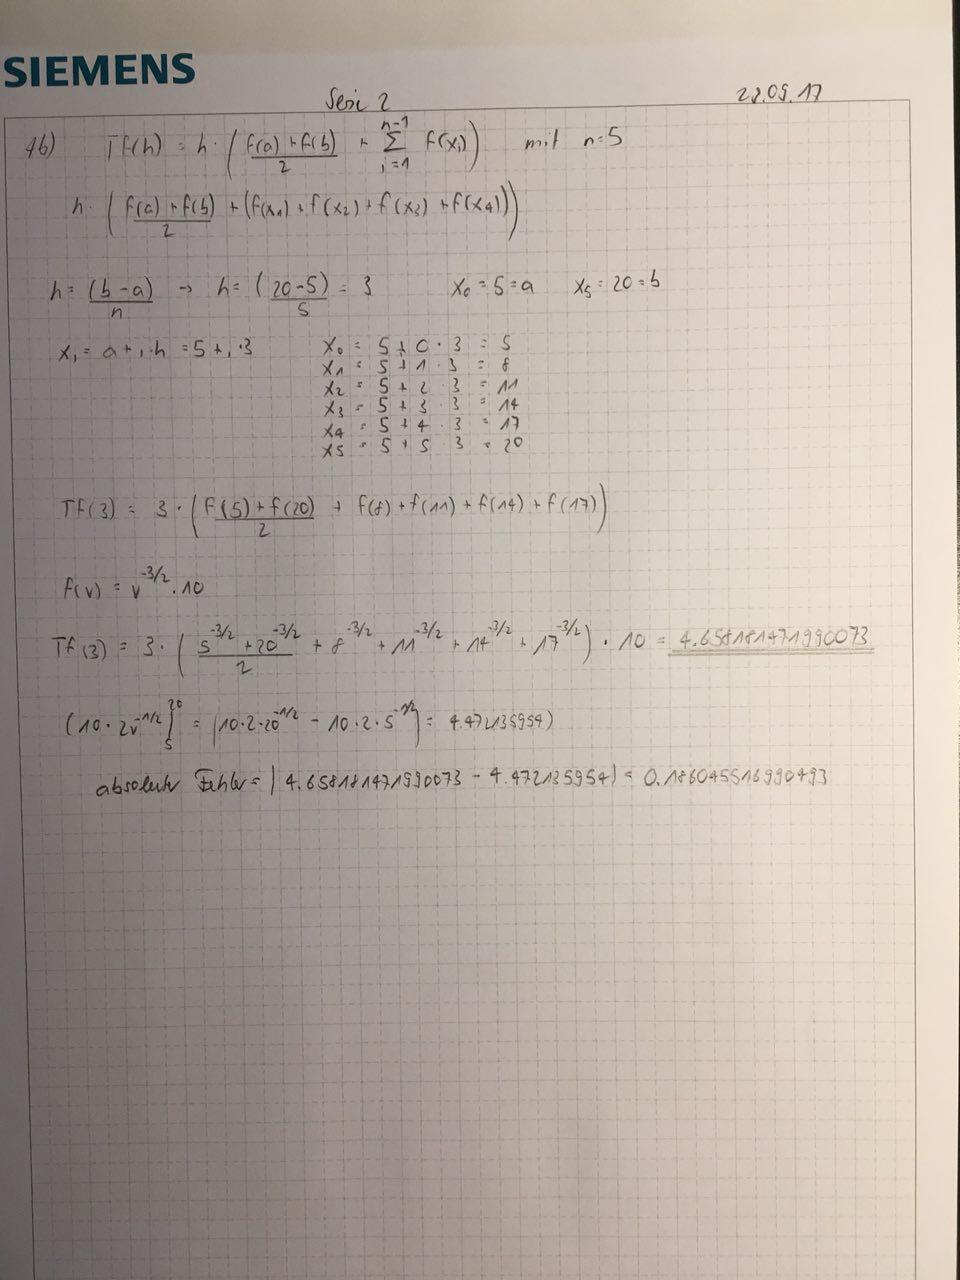 SIEMENS
Serie 2 28.09.17
4b) Tf(h) = h · ( (f(a) + f(b))/2 + Σ_{i=1}^{n-1} f(x_i) ) mit n=5
h · ( (f(a) + f(b))/2 + (f(x_1) + f(x_2) + f(x_3) + f(x_4)) )
h = (b-a)/n → h = (20-5)/5 = 3 x_0 = 5 = a x_5 = 20 = b
x_i = a + i·h = 5 + i·3 x_0 = 5 + 0 · 3 = 5
x_1 = 5 + 1 · 3 = 8
x_2 = 5 + 2 · 3 = 11
x_3 = 5 + 3 · 3 = 14
x_4 = 5 + 4 · 3 = 17
x_5 = 5 + 5 · 3 = 20
Tf(3) = 3 · ( (f(5) + f(20))/2 + f(8) + f(11) + f(14) + f(17) )
f(v) = v^{-3/2} · 10
Tf(3) = 3 · ( (5^{-3/2} + 20^{-3/2})/2 + 8^{-3/2} + 11^{-3/2} + 14^{-3/2} + 17^{-3/2} ) · 10 = 4.658181471990073
(10 · 2v^{-1/2} ]_5^{20} = |10·2·20^{-1/2} - 10·2·5^{-1/2}| = 4.472135954)
absoluter Fehler = | 4.658181471990073 - 4.472135954| = 0.186045516990493